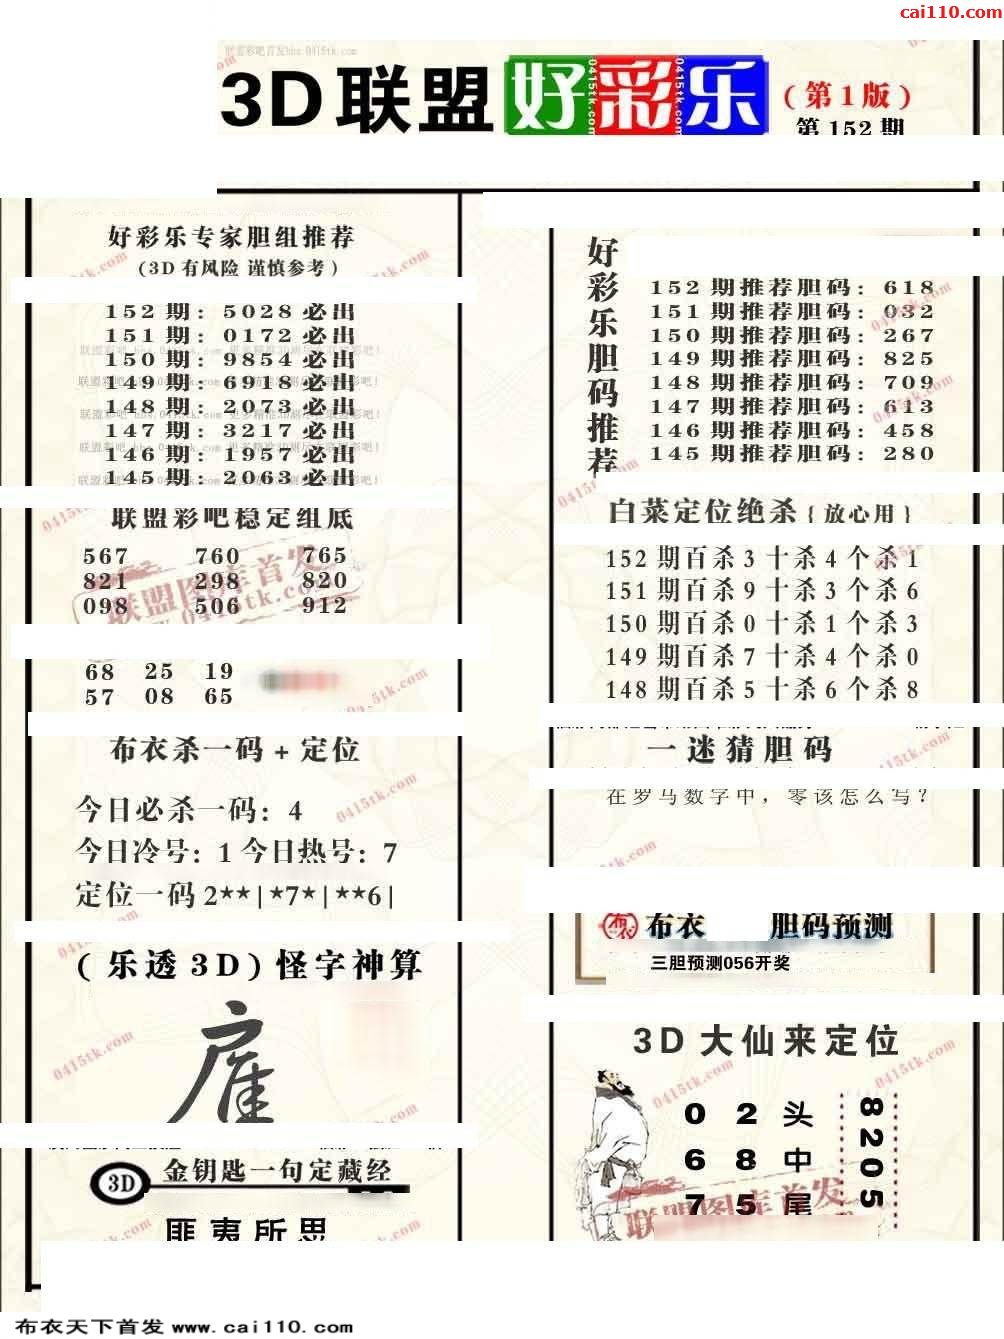 cai110.com
联盟彩吧首发bbs.0415tk.com
3D联盟好彩乐(第1版)
第152期
好彩乐专家胆组推荐
(3D有风险 谨慎参考)
152期: 5028必出
151期: 0172必出
150期: 9854必出
149期: 6918必出
148期: 2073必出
147期: 3217必出
146期: 1957必出
145期: 2063必出
联盟彩吧稳定组底
567 760 765
821 298 820
098 506 912
68 25 19
57 08 65
布衣杀一码+定位
今日必杀一码: 4
今日冷号: 1 今日热号: 7
定位一码 2**|*7*|**6|
(乐透3D)怪字神算
3D 金钥匙一句定藏经
匪夷所思
好彩乐胆码推荐
152期推荐胆码: 618
151期推荐胆码: 032
150期推荐胆码: 267
149期推荐胆码: 825
148期推荐胆码: 709
147期推荐胆码: 613
146期推荐胆码: 458
145期推荐胆码: 280
白菜定位绝杀{放心用}
152期百杀3十杀4个杀1
151期百杀9十杀3个杀6
150期百杀0十杀1个杀3
149期百杀7十杀4个杀0
148期百杀5十杀6个杀8
一迷猜胆码
在罗马数字中，零该怎么写?
布衣 布衣 胆码预测
三胆预测056开奖
3D大仙来定位
0 2头
6 8中
7 5尾
8205
联盟图库首发
0415tk.com
布衣天下首发 www.cai110.com